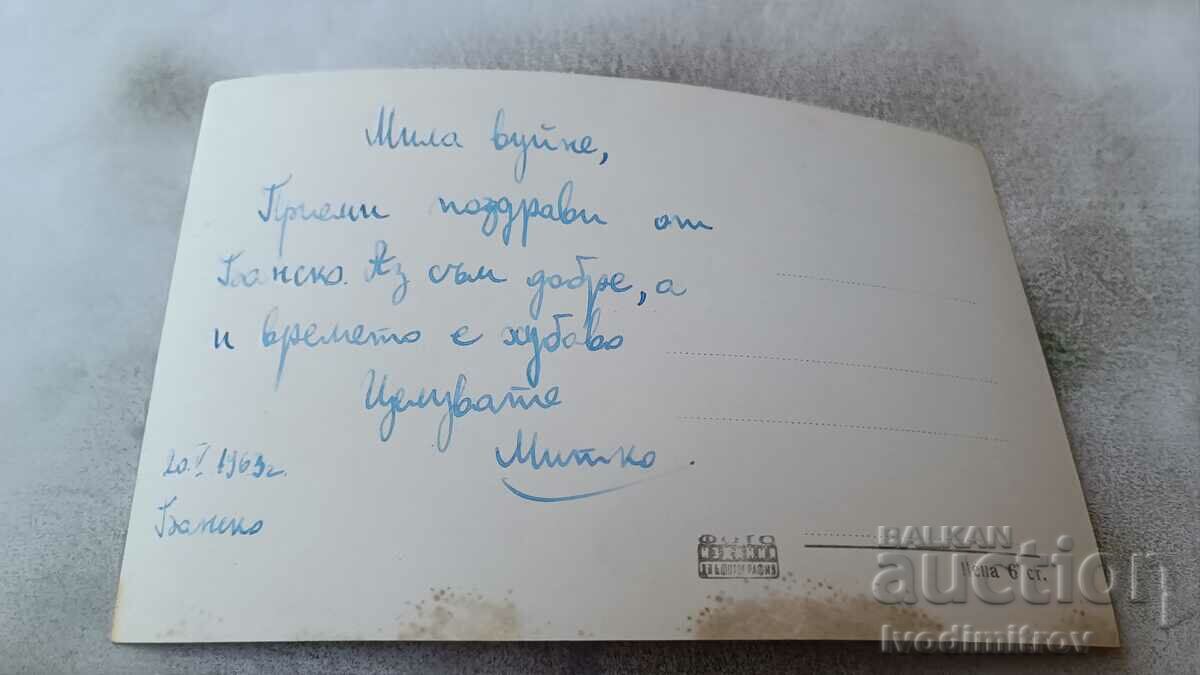 Мила вуйне,
Приеми поздрави от
Банско. Аз съм добре, а
и времето е хубаво
Целувате
Митко.
20.V 1963г.
Банско
ФОТО
ИЗДАНИЕ
ДП БЪЛФОТОГРАФИЯ
Цена 6 ст.
BALKAN
auction
Ivodimitrov